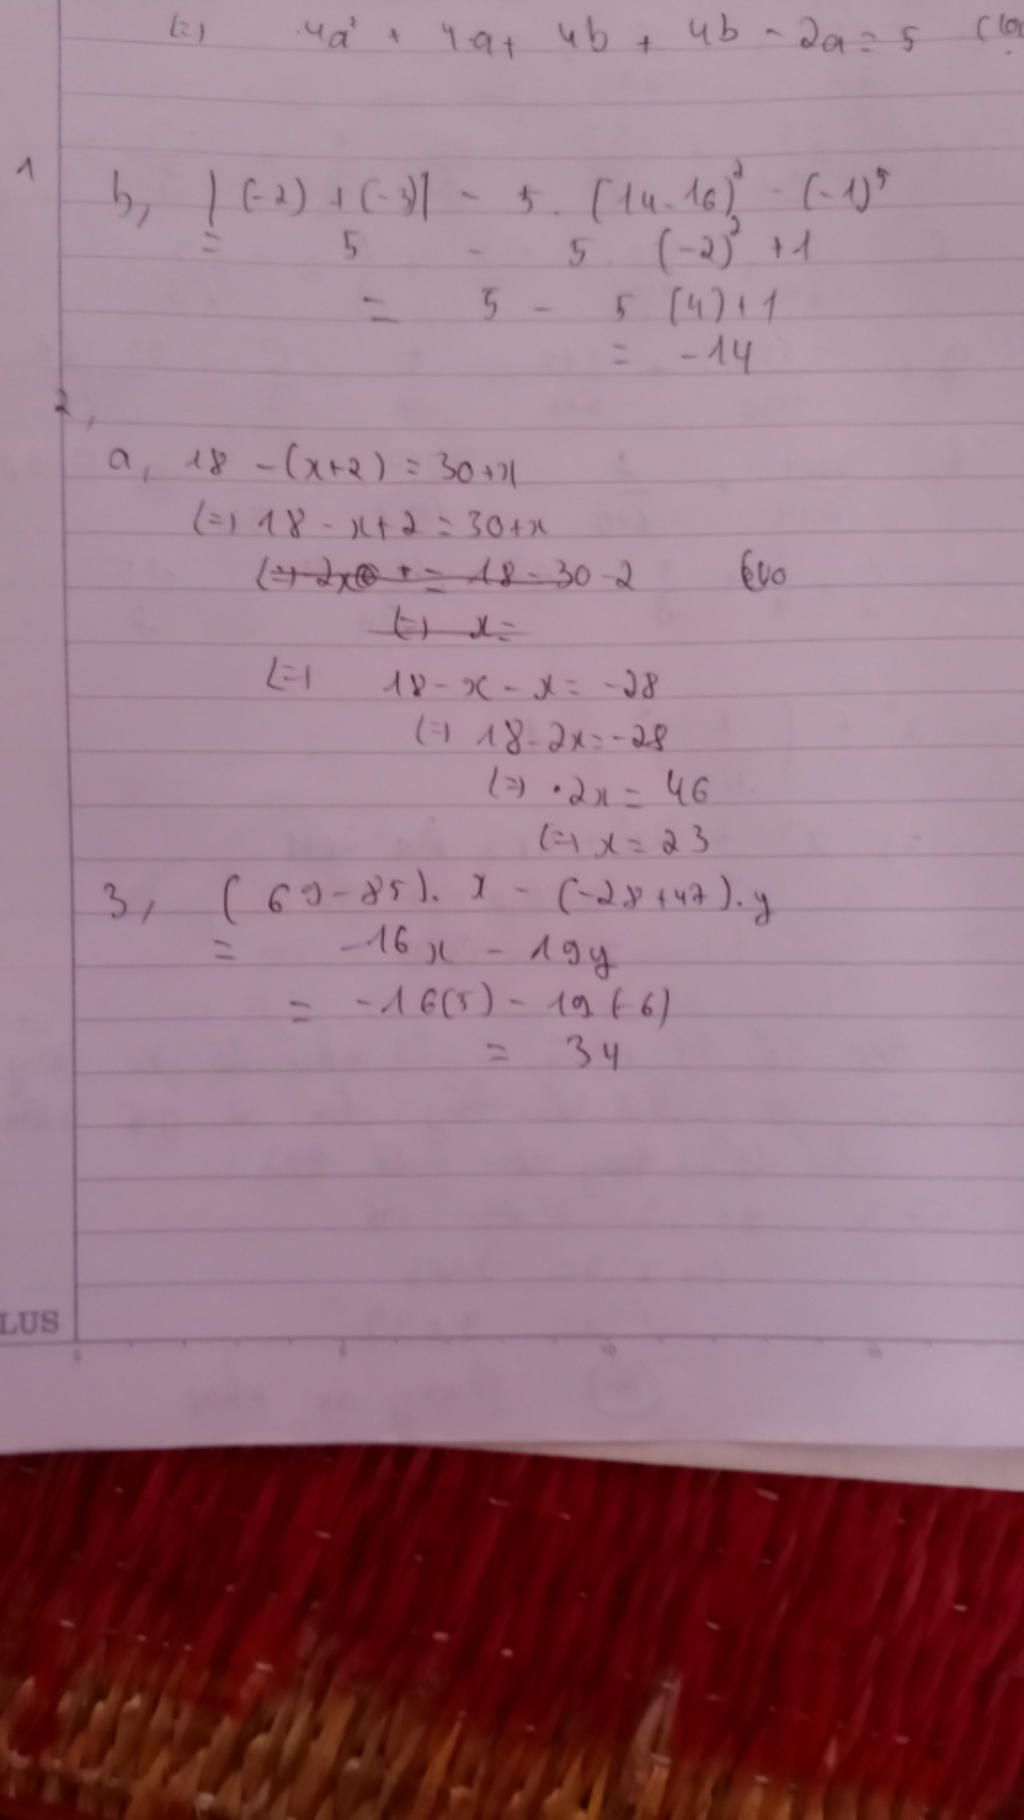 (=) 4a² + 4a + 4b + 4b - 2a = 5
1
b, |(-2) + (-3)| - 5. (14-16)² - (-1)⁵
= 5 - 5 (-2)² + 1
= 5 - 5 (4) + 1
= -14
2,
a, 18 - (x+2) = 30+x
(=) 18 - x+2 = 30+x
(=) 18 - x - x = -28
(=) 18 - 2x = -28
(=) 2x = 46
(=) x = 23
3, (69-85). x - (-28+47). y
= -16x - 19y
= -16(5) - 19(-6)
= 34
LUS
0 5 10 15